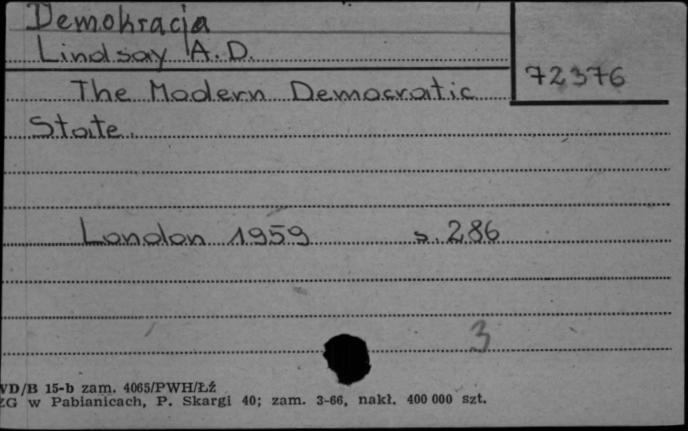 Demokracja
Lindsay A.D.
72376
The Modern Democratic
State.
London 1959 s. 286
3
WD/B 15-b zam. 4065/PWH/Łź
ZG w Pabianicach, P. Skargi 40; zam. 3-66, nakł. 400 000 szt.